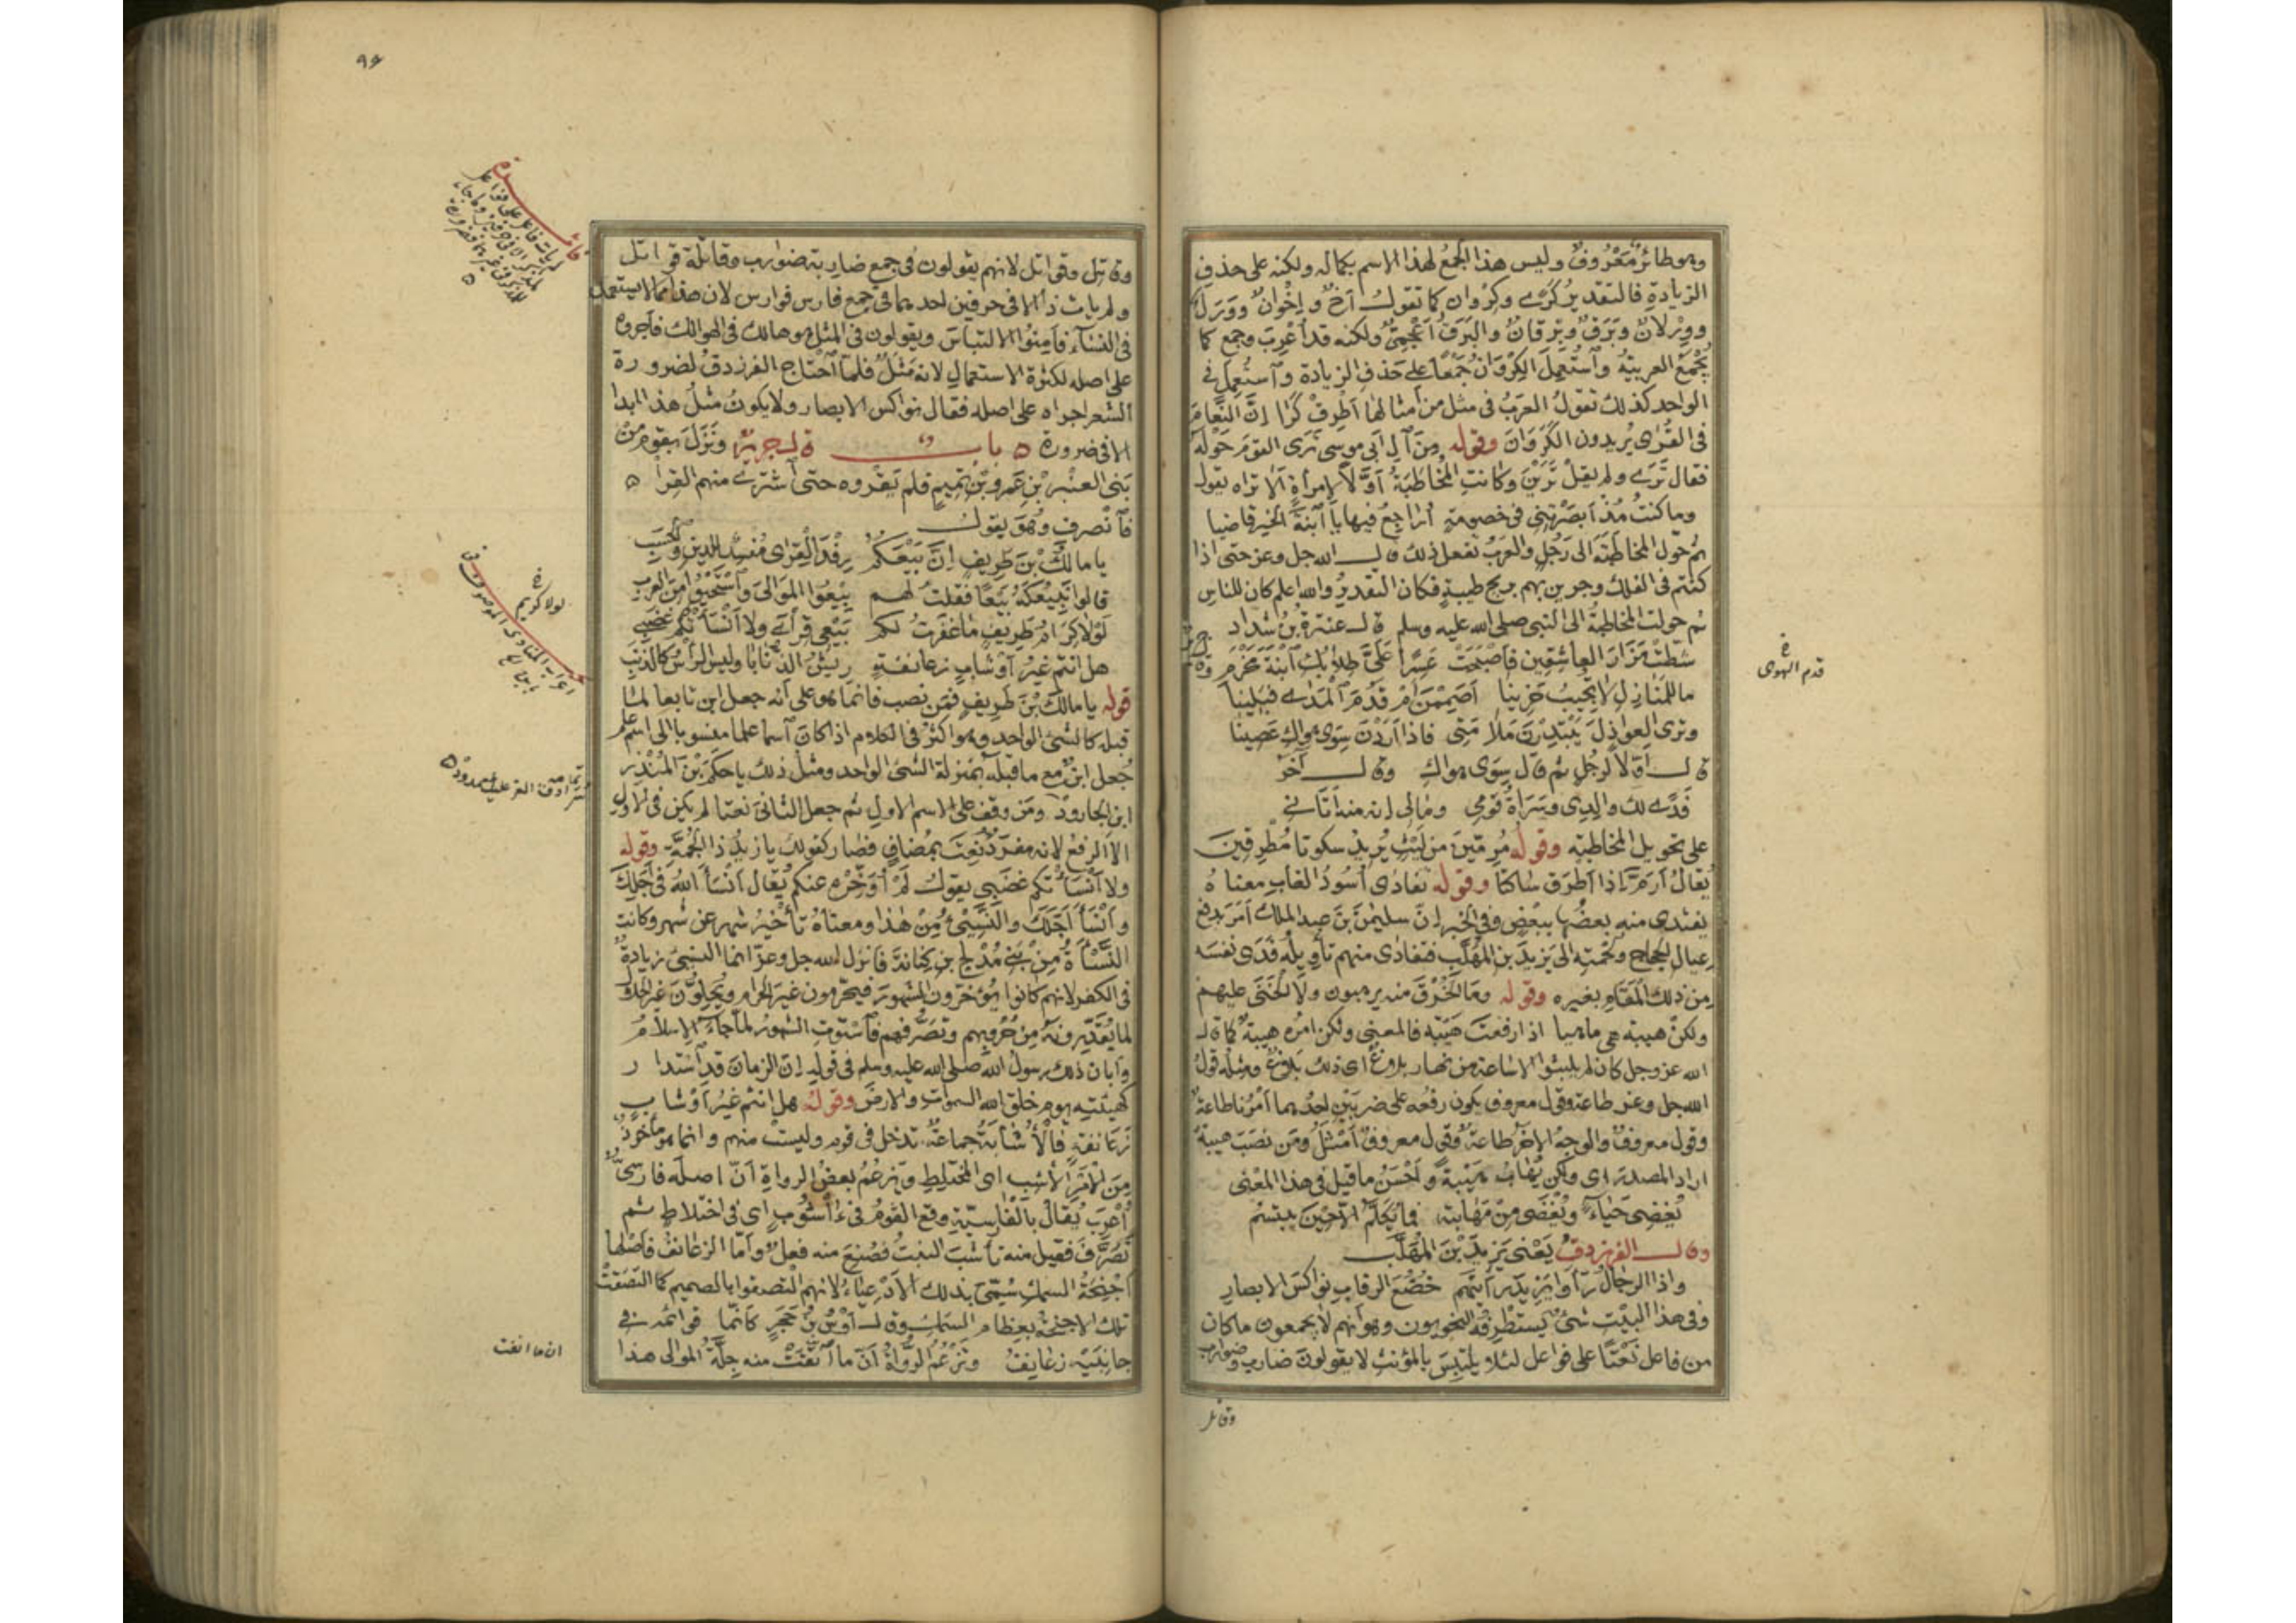 وهو طائر مَعْرُوفٌ وليس هذا الجمعُ لهذا الاسم بكماله ولكنه على حذفِ
الزيادةِ فالتقديرُ كَرًى وكِرْوان كما تقولُ أخٌ وإِخْوانٌ ووَرَلٌ
ووِرْلانٌ وبَرَقٌ وبِرقانٌ والبَرَقُ أعْجَمِيٌّ ولكنه قد أُعْرِبَ وجمع كما
تُجْمَعُ العربيَّةُ وٱستُعمِلَ الكِرْوَانُ جَمْعًا على حَذفِ الزيادة وٱستُعمِل في
الواحد كذلك تقولُ العَرَبُ في مثل من أمثالها أَطرِقْ كَرَا إنَّ النَّعَامَ
في القُرَى يُريدون الكَرَوَانَ وقوله مِنَ آلِ أبي موسى تَرَى القومَ حَوْلَهُ
فقال تَرَى ولم يقل تَرَيْنَ وكانتِ المُخَاطَبَةُ أَوَّلًا لِامرأةٍ ألا تراه يقول
وما كنتُ مُذْ أبصَرْتِنِي في خصومةٍ أراجعُ فيها يا ٱبنةَ الخَيرِ قاضيا
ثم حَوَّل المخاطَبَةَ إلى رَجُلٍ والعَرَبُ تفعل ذلك قال الله جل وعز حتى اذا
كنتم في الفلك وجرين بهم بريح طيبةٍ فكان التقديرُ والله اعلم كان للناس
ثم حولت المخاطبةُ الى النبى صلى الله عليه وسلم قال عنترةُ بن شداد
شَطَّتْ مَزَارَ العاشِقِين فأصْبَحَتْ عَسِرًا عَلَيَّ طِلابُكِ ٱبْنَةَ مَخْرَمِ
ما للمَنَازِلِ لا يُجِيبُ حَزِينَا أصَمِمْنَ أمْ قَدُمَ ٱلْمَدَى فَبَلِينَا
وترى العواذِلَ يَبْتَدِرْنَ مَلامَتِي فاذا أرَدْنَ سِوَى هواكِ عَصِينَا
قال أوّلًا لرَجُلٍ ثم قال سِوَى هواكِ وقال آخَرُ
فِدًى لك والِدِي وسَرَاةُ قَومِي ومالي إنه منه أتَانِي
على تحويل المخاطبةِ وقوله مُرِمِّينَ مِن لَيْثٍ يُريدُ سكوتا مُطْرِقينَ
يُقالُ أرَمَّ إذا أطرَقَ ساكتًا وقوله تفادَى أسُودُ الغابِ معناهُ
يفتدى منه بعضُها ببعْضٍ وفي الخبر إنَّ سليمٰنَ بنَ عبد الملك أمَرَ بدفع
عيال الحجاج ولُحْمتِه إلى يَزِيدَ بن المُهلَّبِ فتفادَى منهم تأويلُه فَدَى نفسَه
مِن ذلك المَقَامِ بغيره وقوله وما الخُرْقُ منه يرهبون ولا الخَنَى عليهم
ولكن هيبة هي ماهيا اذا رفعتَ هَيْبَة فالمعنى ولكن أمرُه هيبةٌ كما قال
الله عز وجل كان لم يلبثوا الا ساعة من نهار بلاغٌ اى ذلك بلاغٌ ومثله قولُ
الله جل وعز طاعة وقول معروف يكون رفعُه على ضربَيْنِ احدُهما أمْرُنا طاعةٌ
وقول معروفٌ والوجهُ الآخَرُ طاعةٌ وقول معروفٌ أمْثَلُ ومَن نصَبَ هيبةً
اراد المصدَرَ اى ولكن يُهابُ هَيْبةً وأحْسَنُ ما قيل في هذا المَعْنى
يُغْضِي حَيَاءً ويُغْضَى مِنْ مَهَابَتِهِ فما يُكَلَّمُ الّا حِينَ يبتسم
وقال الفرزدقُ يَعْنِي يَزِيدَ بْنَ المُهَلَّبِ
وإذا الرجالُ رَأَوا يَزيدَ رأيتَهم خُضُعَ الرقابِ نواكِسَ الابصارِ
وفي هذا البَيْتِ شئٌ يَستَطرِفُه النحويون وهو أنهم لا يجمعون ما كان
من فاعل نَعْتًا على فواعل لئلا يلتبِسَ بالمؤنث لا يقولون ضارب وضوارب
وقاتل
قدم الهوى
٩٦
وقاتل وقواتل لانهم يقولون في جمع ضاربة ضوارب وقاتلة قواتل
ولم يات ذا الا في حرفين احدهما في جمع فارس فوارس لان هذا مما لا يستعمل
في النسآء فأمِنُوا الالتباسَ ويقولون في المثل هو هالك في الهوالك فأجروه
على اصله لكثرة الاستعمالِ لانه مَثَلٌ فلمّا ٱحتاج الفرزدقُ لضرورة
الشعر اجراه على اصله فقال نواكس الابصار ولا يكونُ مثلُ هذا ابدا
الا في ضرورة ۵ باب قال جريرٌ ونَزَلَ بقومٍ مِنْ
بَني العَنْبَرِ بْنِ عَمرو بْنِ تَميمٍ فلم يَقْرُوه حتى ٱشتَرَى منهم القِرَا ۵
فٱنصرف وهُوَ يقولُ
يا مالكَ بْنَ طَرِيفٍ إنَّ بَيْعَكُمُ رِفْدَ القِرَى مُفْسِدٌ للدينِ والحَسَبِ
قالوا نَبِيعُكَهُ بَيْعًا فقلتُ لهم بِيْعُوا المَوَالِيَ وٱسْتَحْيُوا مِنَ العَرَبِ
لَوْلا كِرَامُ طَرِيفٍ ما غَفَرتُ لكم بَيْعِي قِرَايَ ولا أنْسَأتُكُم غَضَبِي
هل انتم غيرُ أوْشابٍ زعانفةٍ رِيشُ الذُّنَابَا وليس الرَأسُ كالذنَبِ
قوله يا مالكَ بْنَ طَريفٍ فمَن نصب فانما هو على أنه جعل ابن تابعا لما
قبله كالشئ الواحد وهو اكثرُ في الكلام اذا كانَ ٱسما علما منسوبا الى اسم علم
جُعل ابنٌ مع ما قبله بمَنزلة الشئ الواحد ومثلُ ذلك يا حكَمَ بْنَ المُنْذِرِ
ابنِ الجارودْ ومَن وقف على الاسم الاولِ ثم جعل الثاني نعتًا لم يكن في الاول
الا الرفعُ لانه مفرَدٌ نُعِتَ بمُضافٍ فصار كقولك يا زيدُ ذا الجُمَّة وقوله
ولا أنْسَأتُكم غضَبي يقولُ لَمْ أؤَخِّرْه عنكم يُقال أنْسَأ اللهُ في أجَلِكَ
وأنْسَأ أجَلَكَ والنَّسِيئُ مِنْ هٰذا ومعناهُ تأخيرُ شهر عن شهر وكانت
النَّسَأَةُ مِنْ بَنِي مُدْلِجِ بن كِنانةَ فانزل الله جل وعز انما النسئُ زيادةٌ
في الكفر لانهم كانوا يُؤخّرون الشهورَ فيحرمون غير الحَرام ويُحِلّونَ غيرَ الحلالِ
لما يُقدِّرونَهُ مِنْ حُرُوبهم وتصَرُّفِهم فٱستَوَتِ الشهورُ لمّا جاءَ الإسلامُ
وأبان ذلك رسولُ الله صلى الله عليه وسلم في قوله إن الزمانَ قد ٱستدار
كهيئتِه يوم خلق الله السموات والارض وقولُه هل انتم غيرُ أوْشابٍ
زَعَانفةٍ فالْأُشَابَةُ جماعةٌ تدخل في قوم وليستْ منهم وانما هو مأخوذٌ
مِنَ الأمْرِ الأشِبِ اى المختلِطِ ويَزعُمُ بعضُ الرواةِ أنَّ اصله فارسيٌّ
أُعْرِبَ يُقالُ بالفَارِسِيَّةِ وقع القومُ في أشُوبٍ اى في اختلاط ثم
تصَرَّفَ فقيل منه تأشَّبَ النبتُ فصُنِعَ منه فعلٌ وأمّا الزعانفُ فأصْلُها
أجنِحَةُ السمكِ سُمّي بذلك الأدْعِياءُ لانهم التصقوا بالصميم كما التصَقتْ
تلك الاجنحةُ بعِظام السَمَكِ قال أوْسُ بْنُ حَجَرٍ كأنما قوائمُه في
جانبَيْهِ زعانِفُ وتَزْعُمُ الرُّواةُ أنّ ما أنِفَتْ منه جِلّةُ الموالي هذا
لولا كريم
ان ما انفت